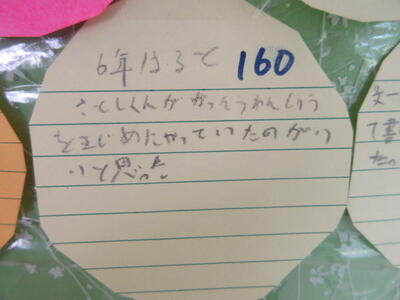 6年はると 160
くんががっそうれんしゅう
をまじめにやっていたのがい
いと思った。
文一
て書
たっ